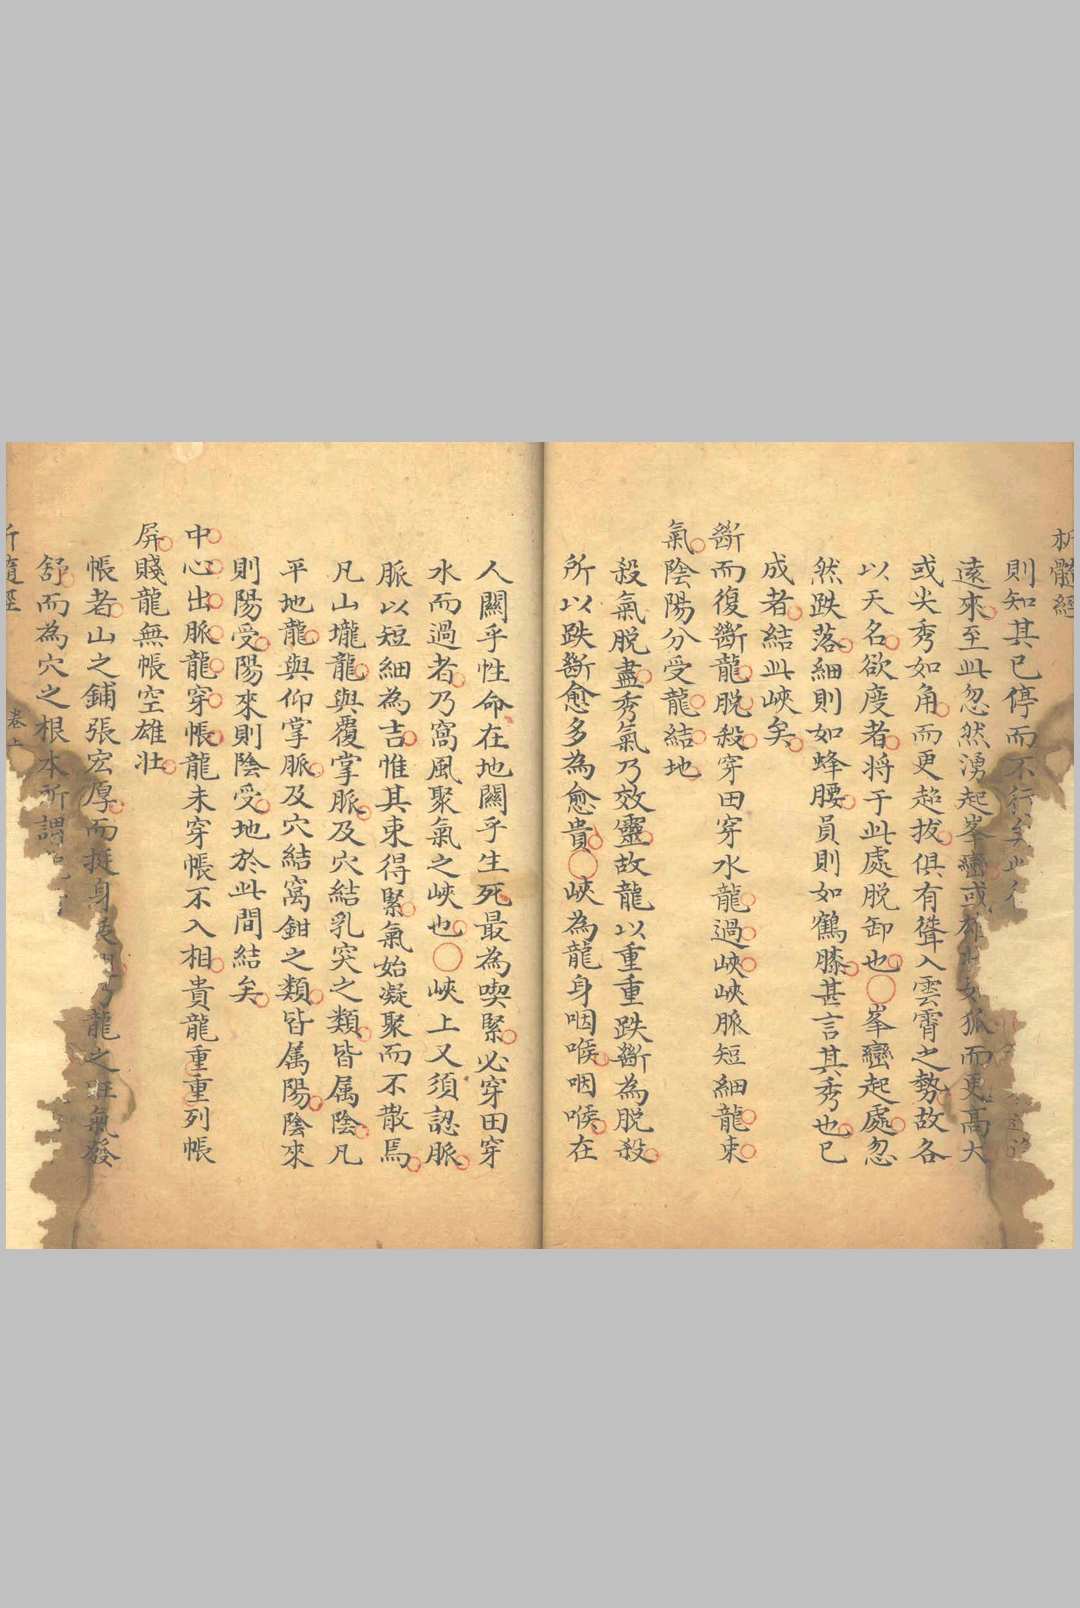 析髓經
則知其已停而不行矣此
遠來至此忽然湧起峯巒或雄壯如狐而更高大
或尖秀如角而更超拔俱有聳入雲霄之勢故各
以天名欲度者將于此處脱卸也〇峯巒起處忽
然跌落細則如蜂腰員則如鶴膝甚言其秀也已
成者結此峽矣
斷而復斷龍脱殺穿田穿水龍過峽峽脈短細龍束
氣陰陽分受龍結地
殺氣脱盡秀氣乃效靈故龍以重重跌斷為脱殺
所以跌斷愈多為愈貴〇峽為龍身咽喉咽喉在
人關乎性命在地關乎生死最為喫緊必穿田穿
水而過者乃窩風聚氣之峽也〇峽上又須認脈
脈以短細為吉惟其束得緊氣始凝聚而不散焉
凡山壠龍與覆掌脈及穴結乳突之類皆属陰凡
平地龍與仰掌脈及穴結窩鉗之類皆属陽陰來
則陽受陽來則陰受地於此間結矣
中心出脈龍穿帳龍未穿帳不入相貴龍重重列帳
屏賤龍無帳空雄壮
帳者山之鋪張宏厚而挺身乃龍之旺氣發
舒而為穴之根本所謂
析髓經
卷上